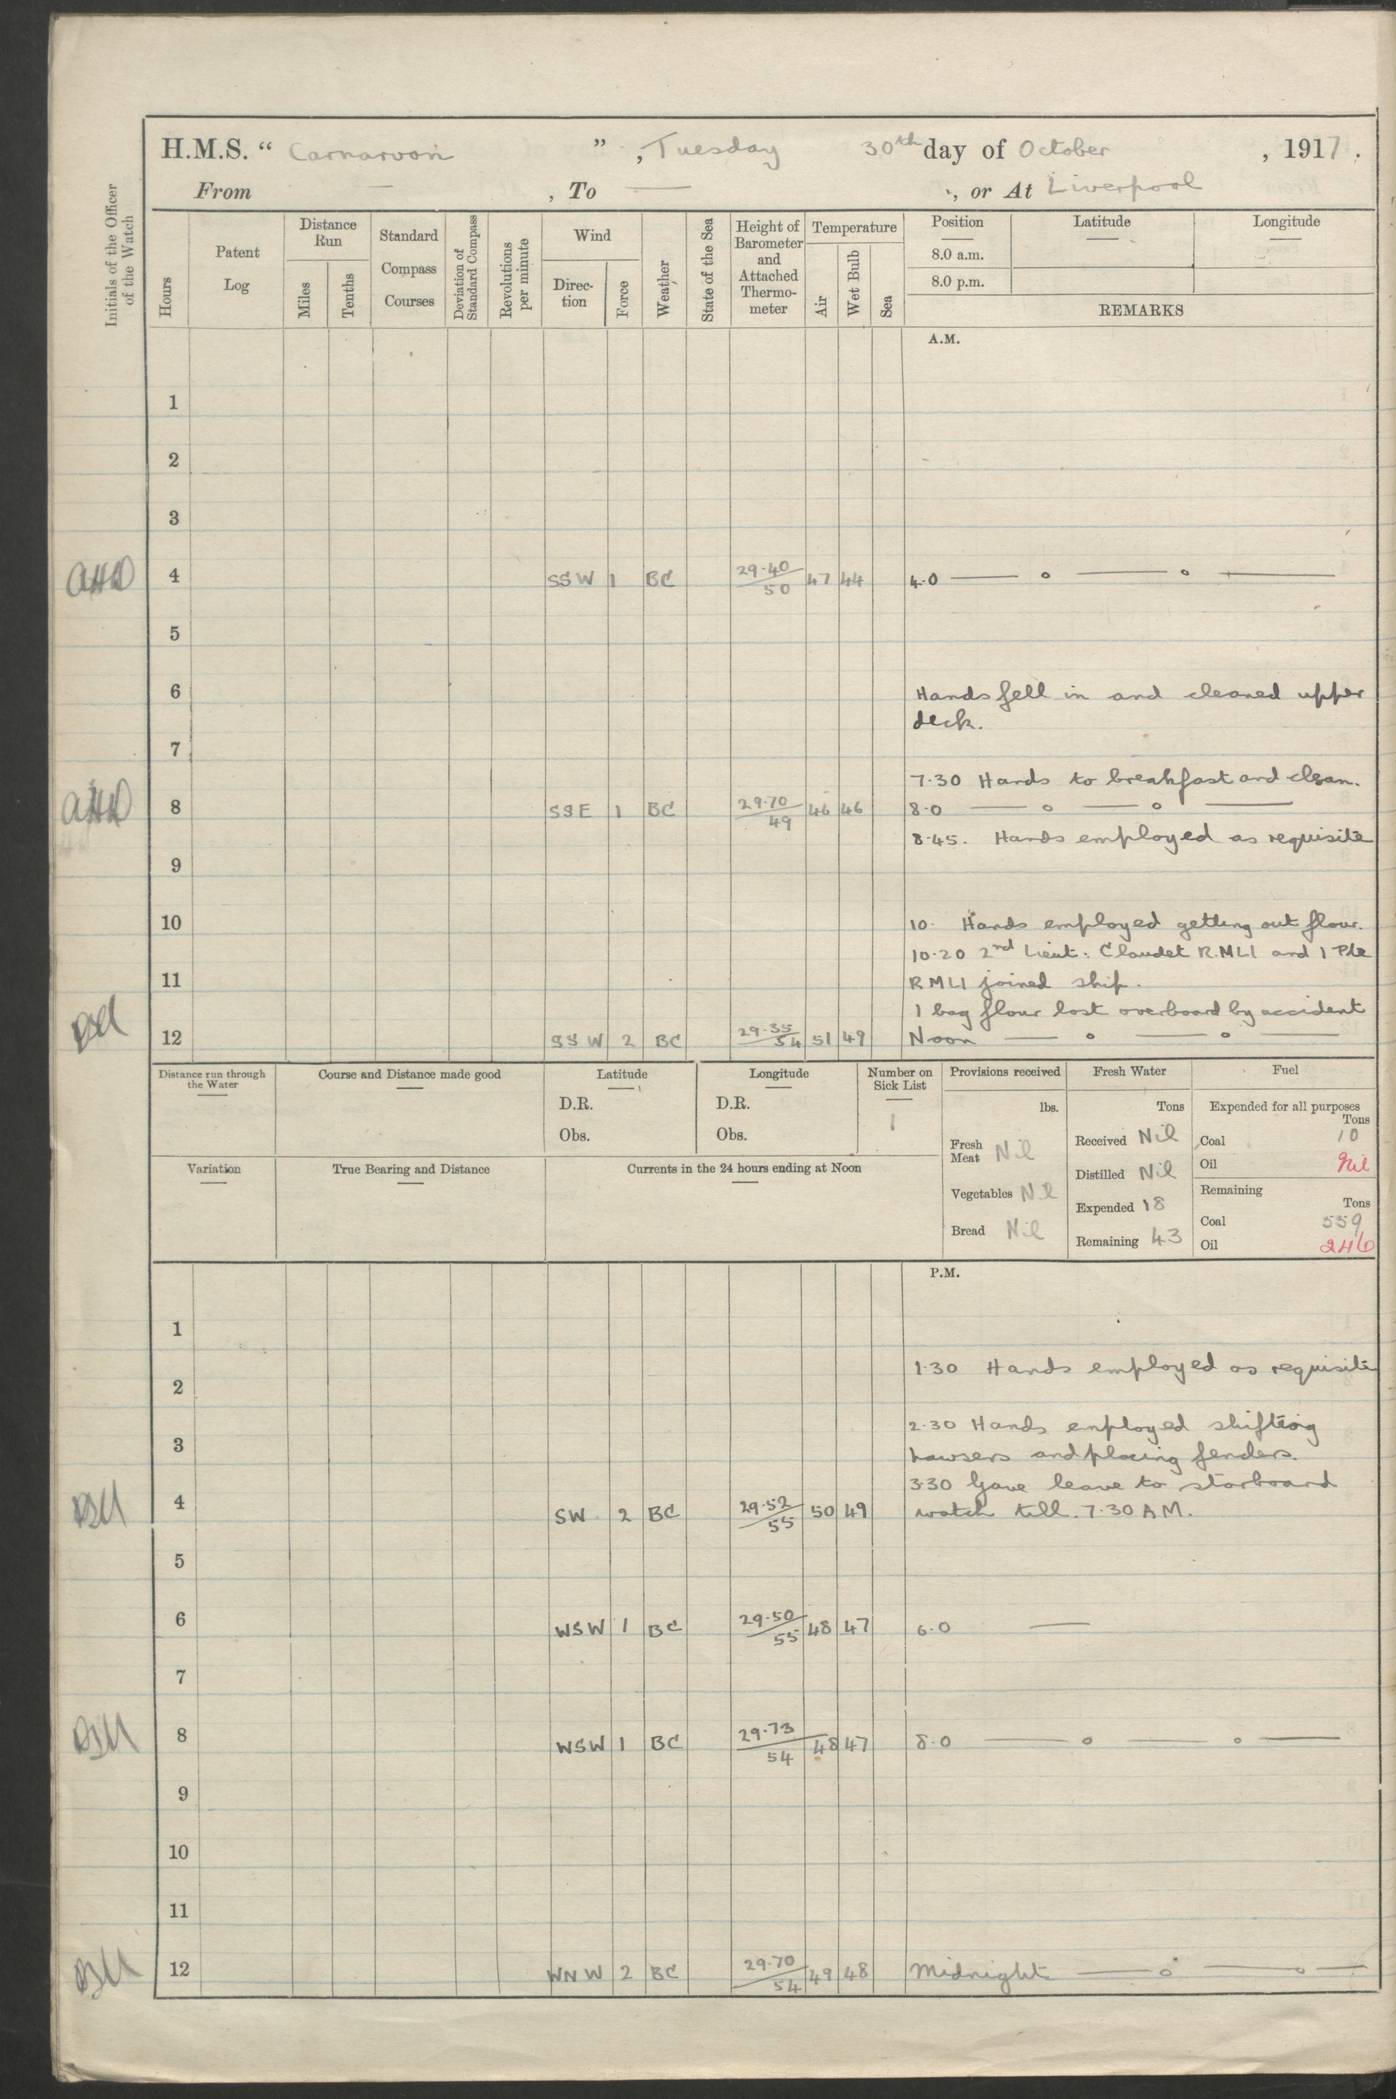 H.M.S. “ Carnarvon ” , Tuesday 30th day of October , 1917 .
From — , To — , or At Liverpool
Initials of the Officer of the Watch
Hours
Patent Log
Distance Run
Miles
Tenths
Standard Compass Courses
Deviation of Standard Compass
Revolutions per minute
Wind
Direc-tion
Force
Weather
State of the Sea
Height of Barometer and Attached Thermo-meter
Temperature
Air
Wet Bulb
Sea
Position Latitude Longitude
8.0 a.m.
8.0 p.m.
REMARKS
A.M.
1
2
3
4 SSW 1 BC 29.40/50 47 44 4.0 — o — o —
5
6 Hands fell in and cleaned upper
deck.
7
7.30 Hands to breakfast and clean.
8 SSE 1 BC 29.70/49 46 46 8.0 — o — o —
8.45. Hands employed as requisite
9
10 10. Hands employed getting out flour.
10.20 2nd Lieut: Claudet R.MLI and 1 Pte
11 RMLI joined ship.
1 bag flour lost overboard by accident
12 SSW 2 BC 29.35/54 51 49 Noon — o — o —
Distance run through the Water
Course and Distance made good
Latitude
D.R.
Obs.
Longitude
D.R.
Obs.
Number on Sick List
1
Provisions received
lbs.
Fresh Meat Nil
Vegetables Nil
Bread Nil
Fresh Water
Tons
Received Nil
Distilled Nil
Expended 18
Remaining 43
Fuel
Expended for all purposes
Tons
Coal 10
Oil Nil
Remaining
Tons
Coal 559
Oil 246
Variation
True Bearing and Distance
Currents in the 24 hours ending at Noon
P.M.
1
1.30 Hands employed as requisite
2
2.30 Hands employed shifting
3
hawsers and placing fenders.
3.30 Gave leave to starboard
4 SW 2 BC 29.52/55 50 49 watch till 7.30 AM.
5
6 WSW 1 BC 29.50/55 48 47 6.0 —
7
8 WSW 1 BC 29.73/54 48 47 8.0 — o — o —
9
10
11
12 WNW 2 BC 29.70/54 49 48 Midnight — o — o —